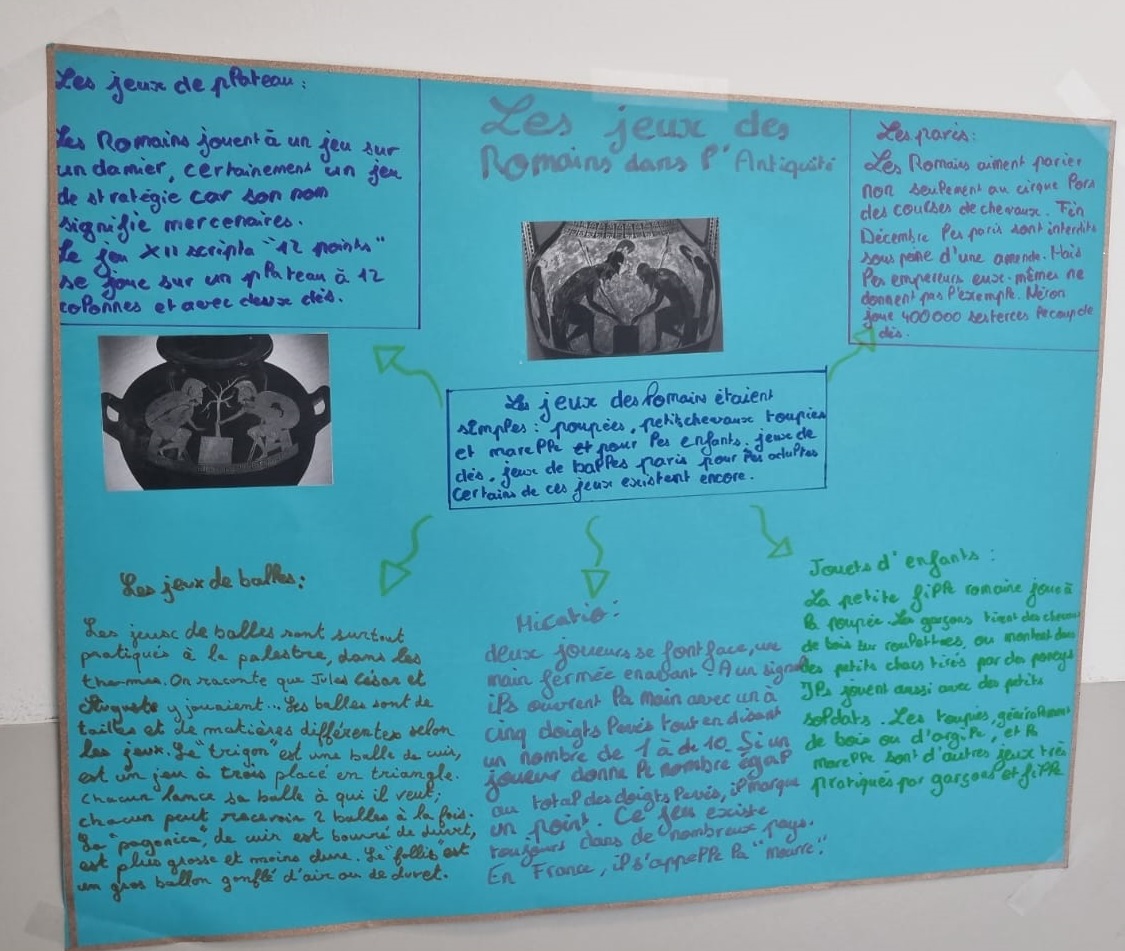 Les jeux de plateau:
Les Romains jouent à un jeu sur
un damier, certainement un jeu
de stratégie car son nom
signifie mercenaires.
Le jeu XII scripta "12 points"
se joue sur un plateau à 12
colonnes et avec deux dés.
Les jeux des
Romains dans l'Antiquité
Les paris:
Les Romains aiment parier
non seulement au cirque lors
des courses de chevaux. Fin
Décembre les paris sont interdits
sous peine d'une amende. Mais
les empereurs eux-mêmes ne
donnent pas l'exemple. Néron
joue 400000 sesterces le coup de
dés.
Les jeux des Romains étaient
simples: poupées, petits chevaux toupies
et marelle et pour les enfants. jeux de
dés, jeux de balles paris pour les adultes
Certains de ces jeux existent encore.
Les jeux de balles:
Les jeux de balles sont surtout
pratiqués à la palestre, dans les
thermes. On raconte que Jules César et
Auguste y jouaient... Les balles sont de
tailles et de matières différentes selon
les jeux. Le "trigon" est une balle de cuir,
est un jeu à trois placé en triangle.
Chacun lance sa balle à qui il veut;
chacun peut recevoir 2 balles à la fois.
La "paganica", de cuir est bourré de duvet,
est plus grosse et moins dure. Le "follis" est
un gros ballon gonflé d'air ou de duvet.
Micatio:
deux joueurs se font face, une
main fermée en avant. A un signal
ils ouvrent la main avec un à
cinq doigts levés tout en disant
un nombre de 1 à de 10. Si un
joueur donne le nombre égal
au total des doigts levés, il marque
un point. Ce jeu existe
toujours dans de nombreux pays.
En France, il s'appelle la "mourre".
Jouets d'enfants:
La petite fille romaine joue à
la poupée. Les garçons tirent des chevaux
de bois sur roulettes, ou montent dans
des petits chars tirés par des poneys
Ils jouent aussi avec des petits
soldats. Les toupies, généralement
de bois ou d'argile, et la
marelle sont d'autres jeux très
pratiqués par garçons et fille